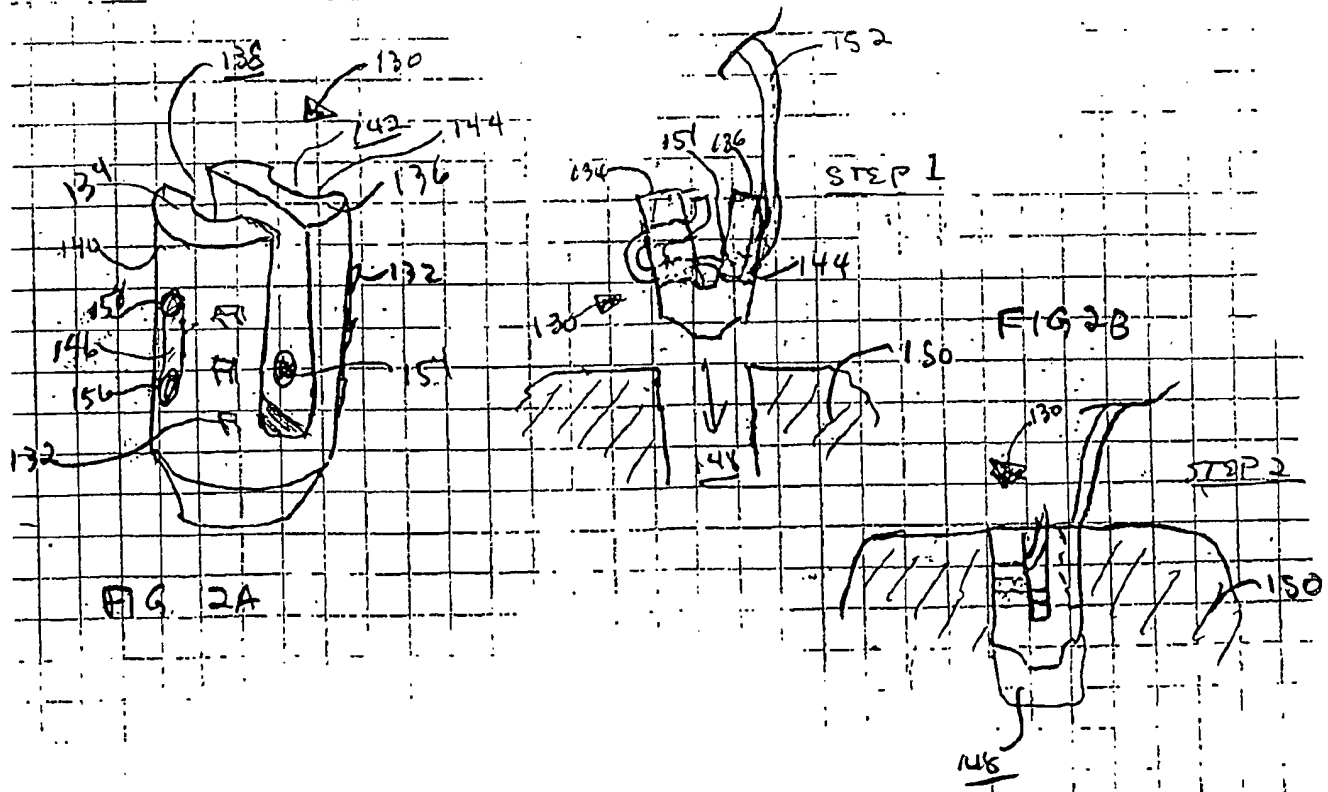 138
130
142
144
134
136
140
132
158
146
156
151
132
FIG 2A
152
134
151
136
STEP 1
144
130
FIG 2B
150
148
130
STEP 2
150
148